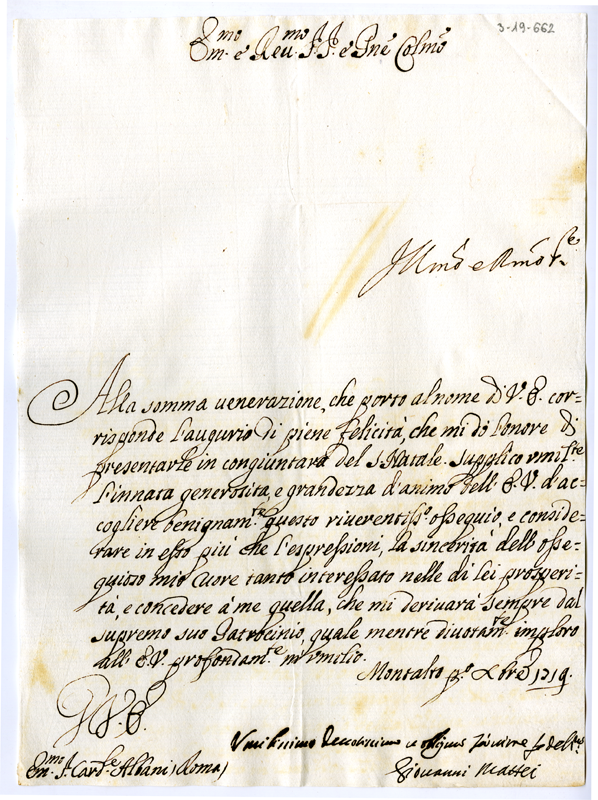 3-19-662
Em.mo e Reu.mo S.r e P.ne Colmo
Illmo e Rmo S.re
Alla somma uenerazione, che porto al nome di V. E. cor=
risponde l'augurio di piene felicità, che mi dò l'onore di
presentarle in congiuntura del S. Natale. Supplico vmilte
l'innata generosità, e grandezza d'animo dell' E. V. d'ac=
cogliere benignam.te questo riuerentiss.o ossequio, e conside=
rare in esso più che l'espressioni, la sincerità dell' osse=
quioso mio Cuore tanto interessato nelle di lei prosperi=
tà, e concedere à me quella, che mi deriuarà sempre dal
supremo suo Patrocinio, quale mentre diuotam.te imploro
all' E. V. profondam.te m'vmilio.
Montalto p.o Xbre 1719.
V. E.
Vmilissimo Deuotissimo
Em.mo S. Card.le Albani (Roma)
Giouanni Mattei